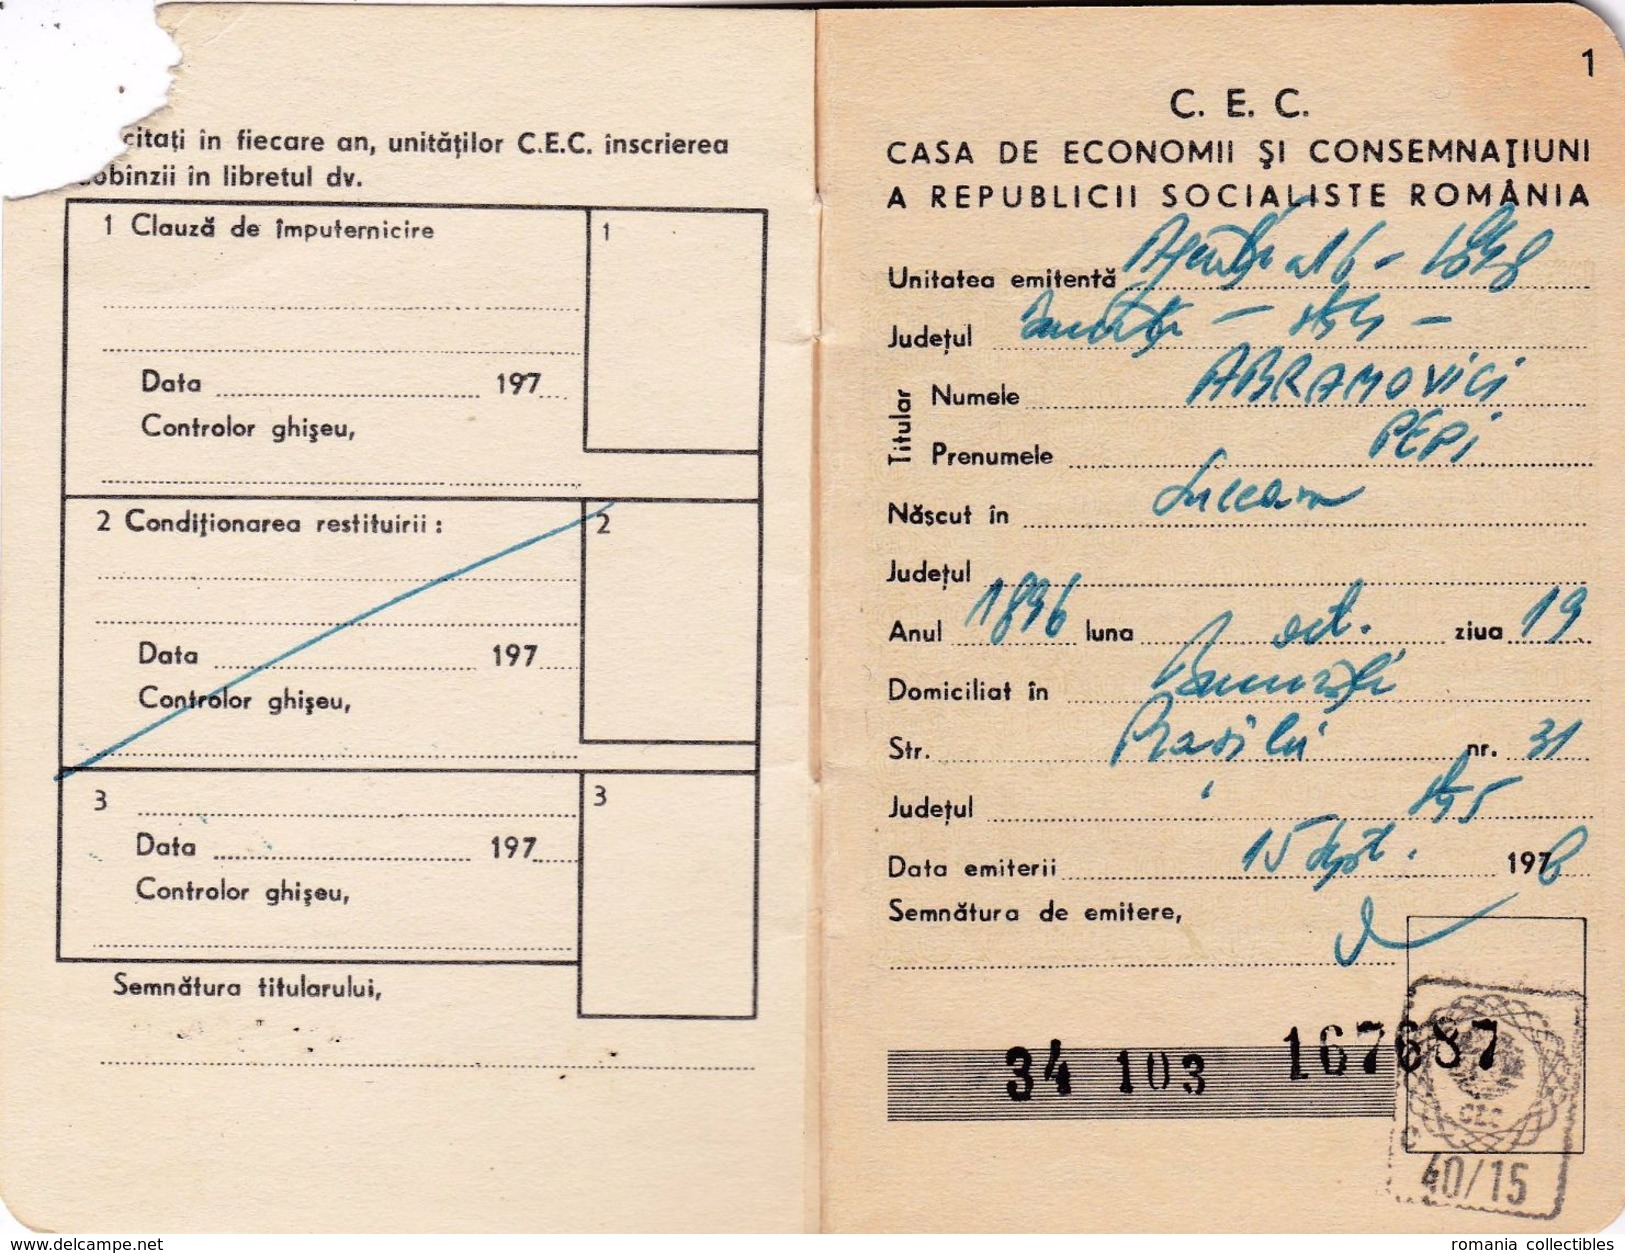 citați în fiecare an, unităților C.E.C. înscrierea
dobînzii în libretul dv.
1 Clauză de împuternicire
1
Data 197
Controlor ghișeu,
2 Condiționarea restituirii :
2
Data 197
Controlor ghișeu,
3
3
Data 197
Controlor ghișeu,
Semnătura titularului,
1
C. E. C.
CASA DE ECONOMII ȘI CONSEMNAȚIUNI
A REPUBLICII SOCIALISTE ROMÂNIA
Unitatea emitentă
Județul
Titular
Numele ABRAMOVICI
Prenumele PEPI
Născut în Suceava
Județul
Anul 1896 luna oct. ziua 19
Domiciliat în
Str. nr. 31
Județul
Data emiterii 15 sept. 1976
Semnătura de emitere,
34 103 167687
CEC
C
40/15
www.delcampe.net
romania collectibles